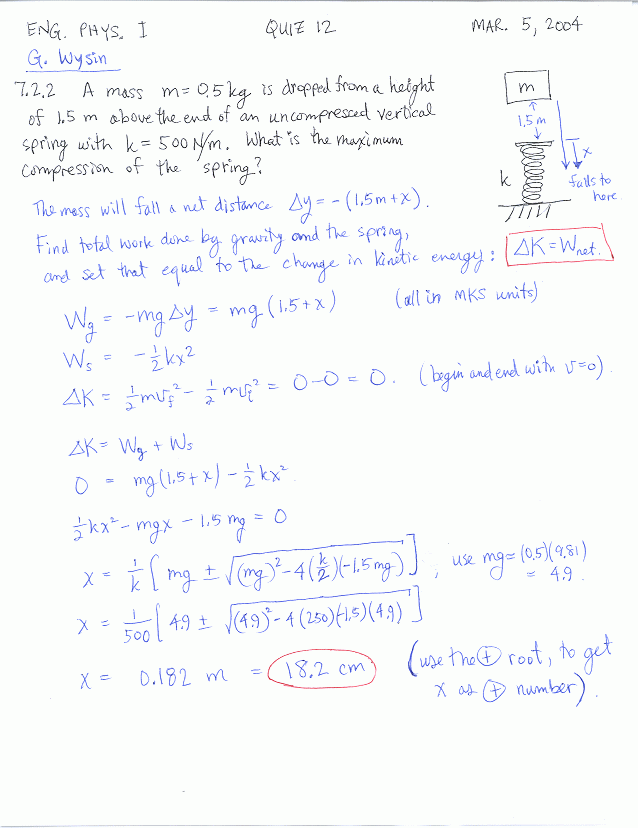 ENG. PHYS. I QUIZ 12 MAR. 5, 2004
G. Wysin
7.2.2 A mass m = 0.5 kg is dropped from a height
of 1.5 m above the end of an uncompressed vertical
spring with k = 500 N/m. What is the maximum
compression of the spring?
m
1.5 m
x
k
falls to
here
The mass will fall a net distance Δy = -(1.5m+x).
Find total work done by gravity and the spring,
and set that equal to the change in kinetic energy: ΔK = Wnet.
Wg = -mgΔy = mg(1.5+x) (all in MKS units)
Ws = -½kx²
ΔK = ½mvf² - ½mvi² = 0-0 = 0. (begin and end with v=0).
ΔK = Wg + Ws
0 = mg(1.5+x) - ½kx²
½kx² - mgx - 1.5mg = 0
x = 1/k [mg ± √((mg)²-4(k/2)(-1.5mg))], use mg = (0.5)(9.81)
= 4.9.
x = 1/500 [4.9 ± √((4.9)²-4(250)(-1.5)(4.9))]
x = 0.182 m = 18.2 cm (use the ⊕ root, to get
x as ⊕ number).